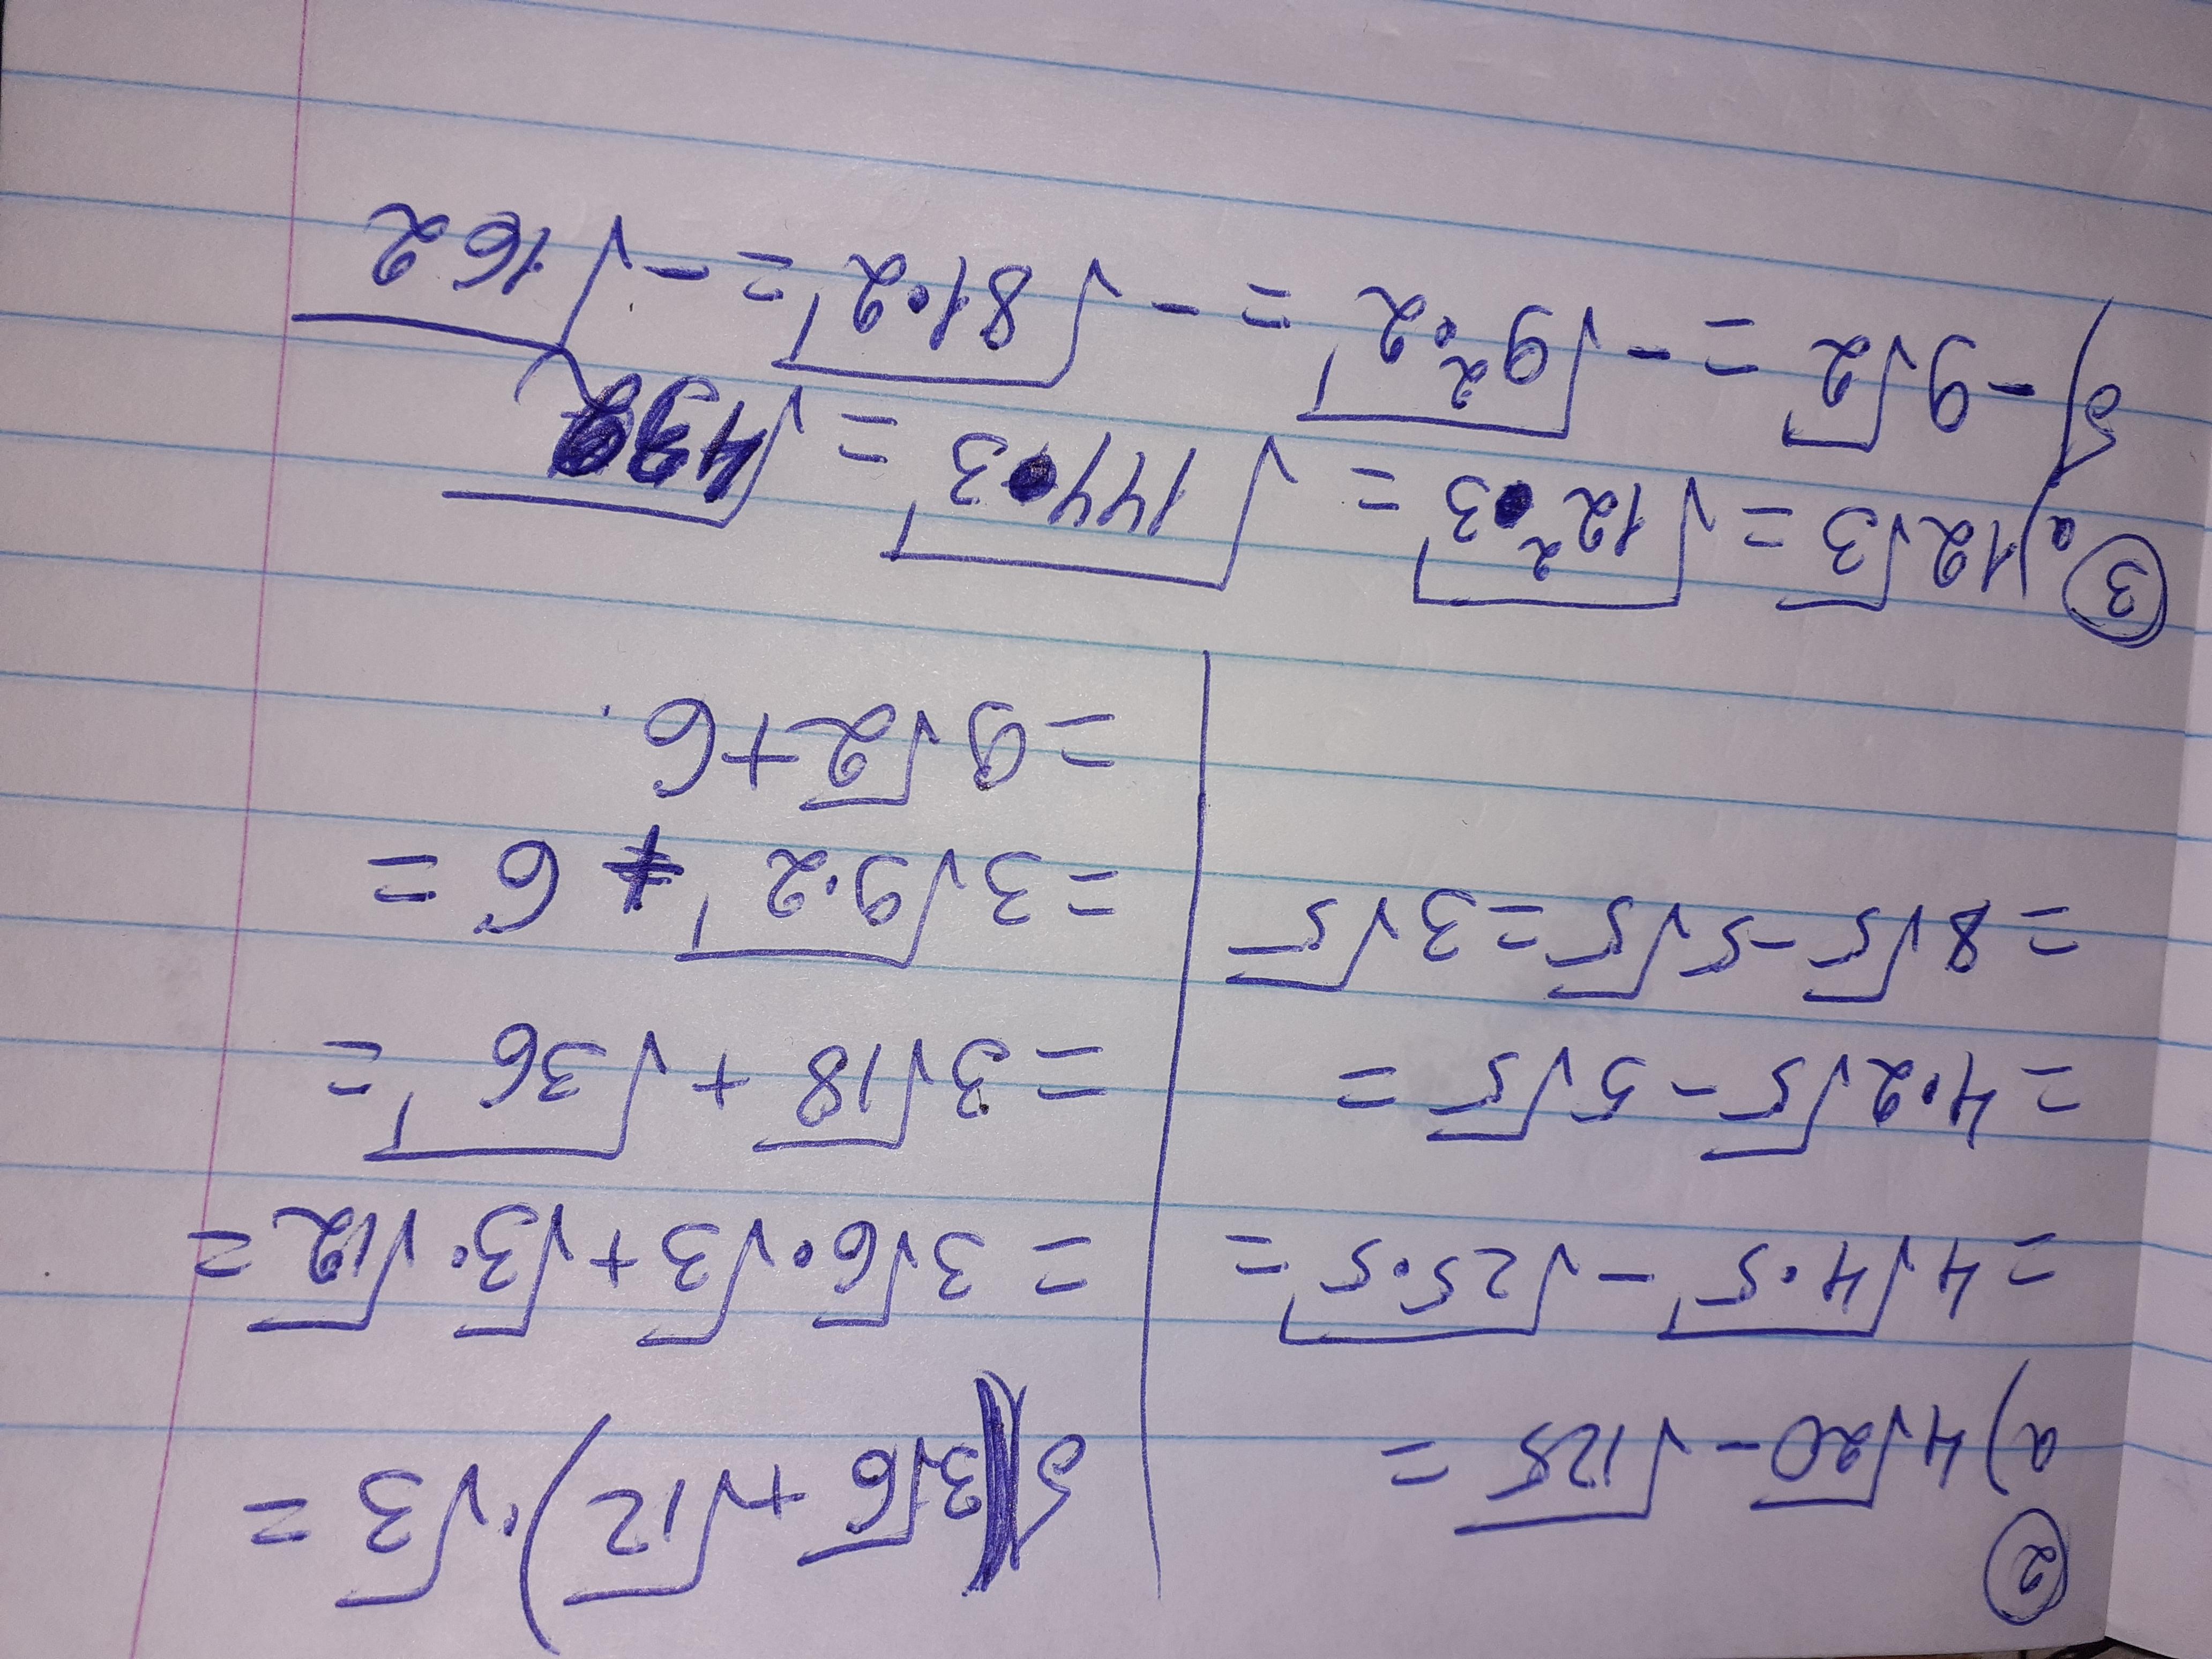 ②
а) 4√20 - √125 =
= 4√4·5 - √25·5 =
= 4·2√5 - 5√5 =
= 8√5 - 5√5 = 3√5
б) (3√6 + √12)·√3 =
= 3√6·√3 + √3·√12 =
= 3√18 + √36 =
= 3√9·2 + 6 =
= 9√2 + 6.
③ а) 12√3 = √12²·3 = √144·3 = √432
б) -9√2 = -√9²·2 = -√81·2 = -√162